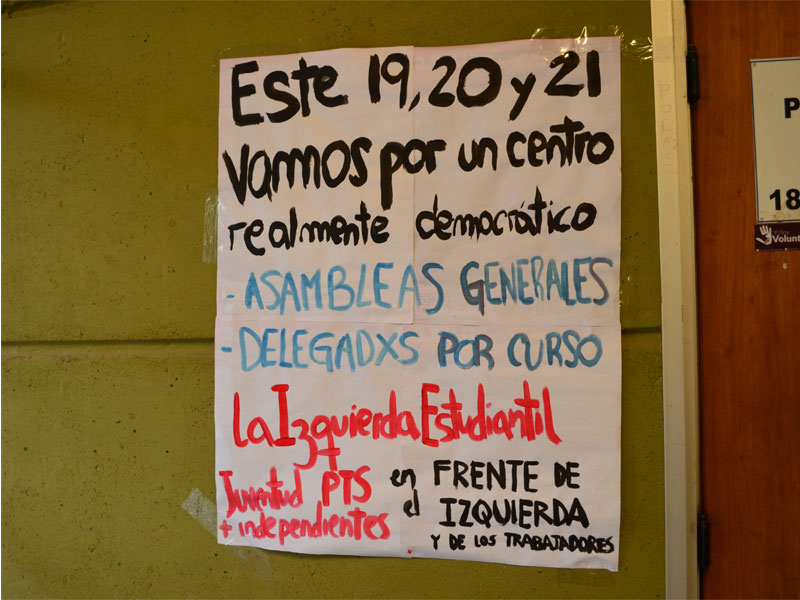 Este 19, 20 y 21
vamos por un centro
realmente democrático
- ASAMBLEAS GENERALES
- DELEGADXS POR CURSO
La Izquierda Estudiantil
+
Juventud PTS
+ independientes
en el
FRENTE DE
IZQUIERDA
Y DE LOS TRABAJADORES
P
18
Volunt